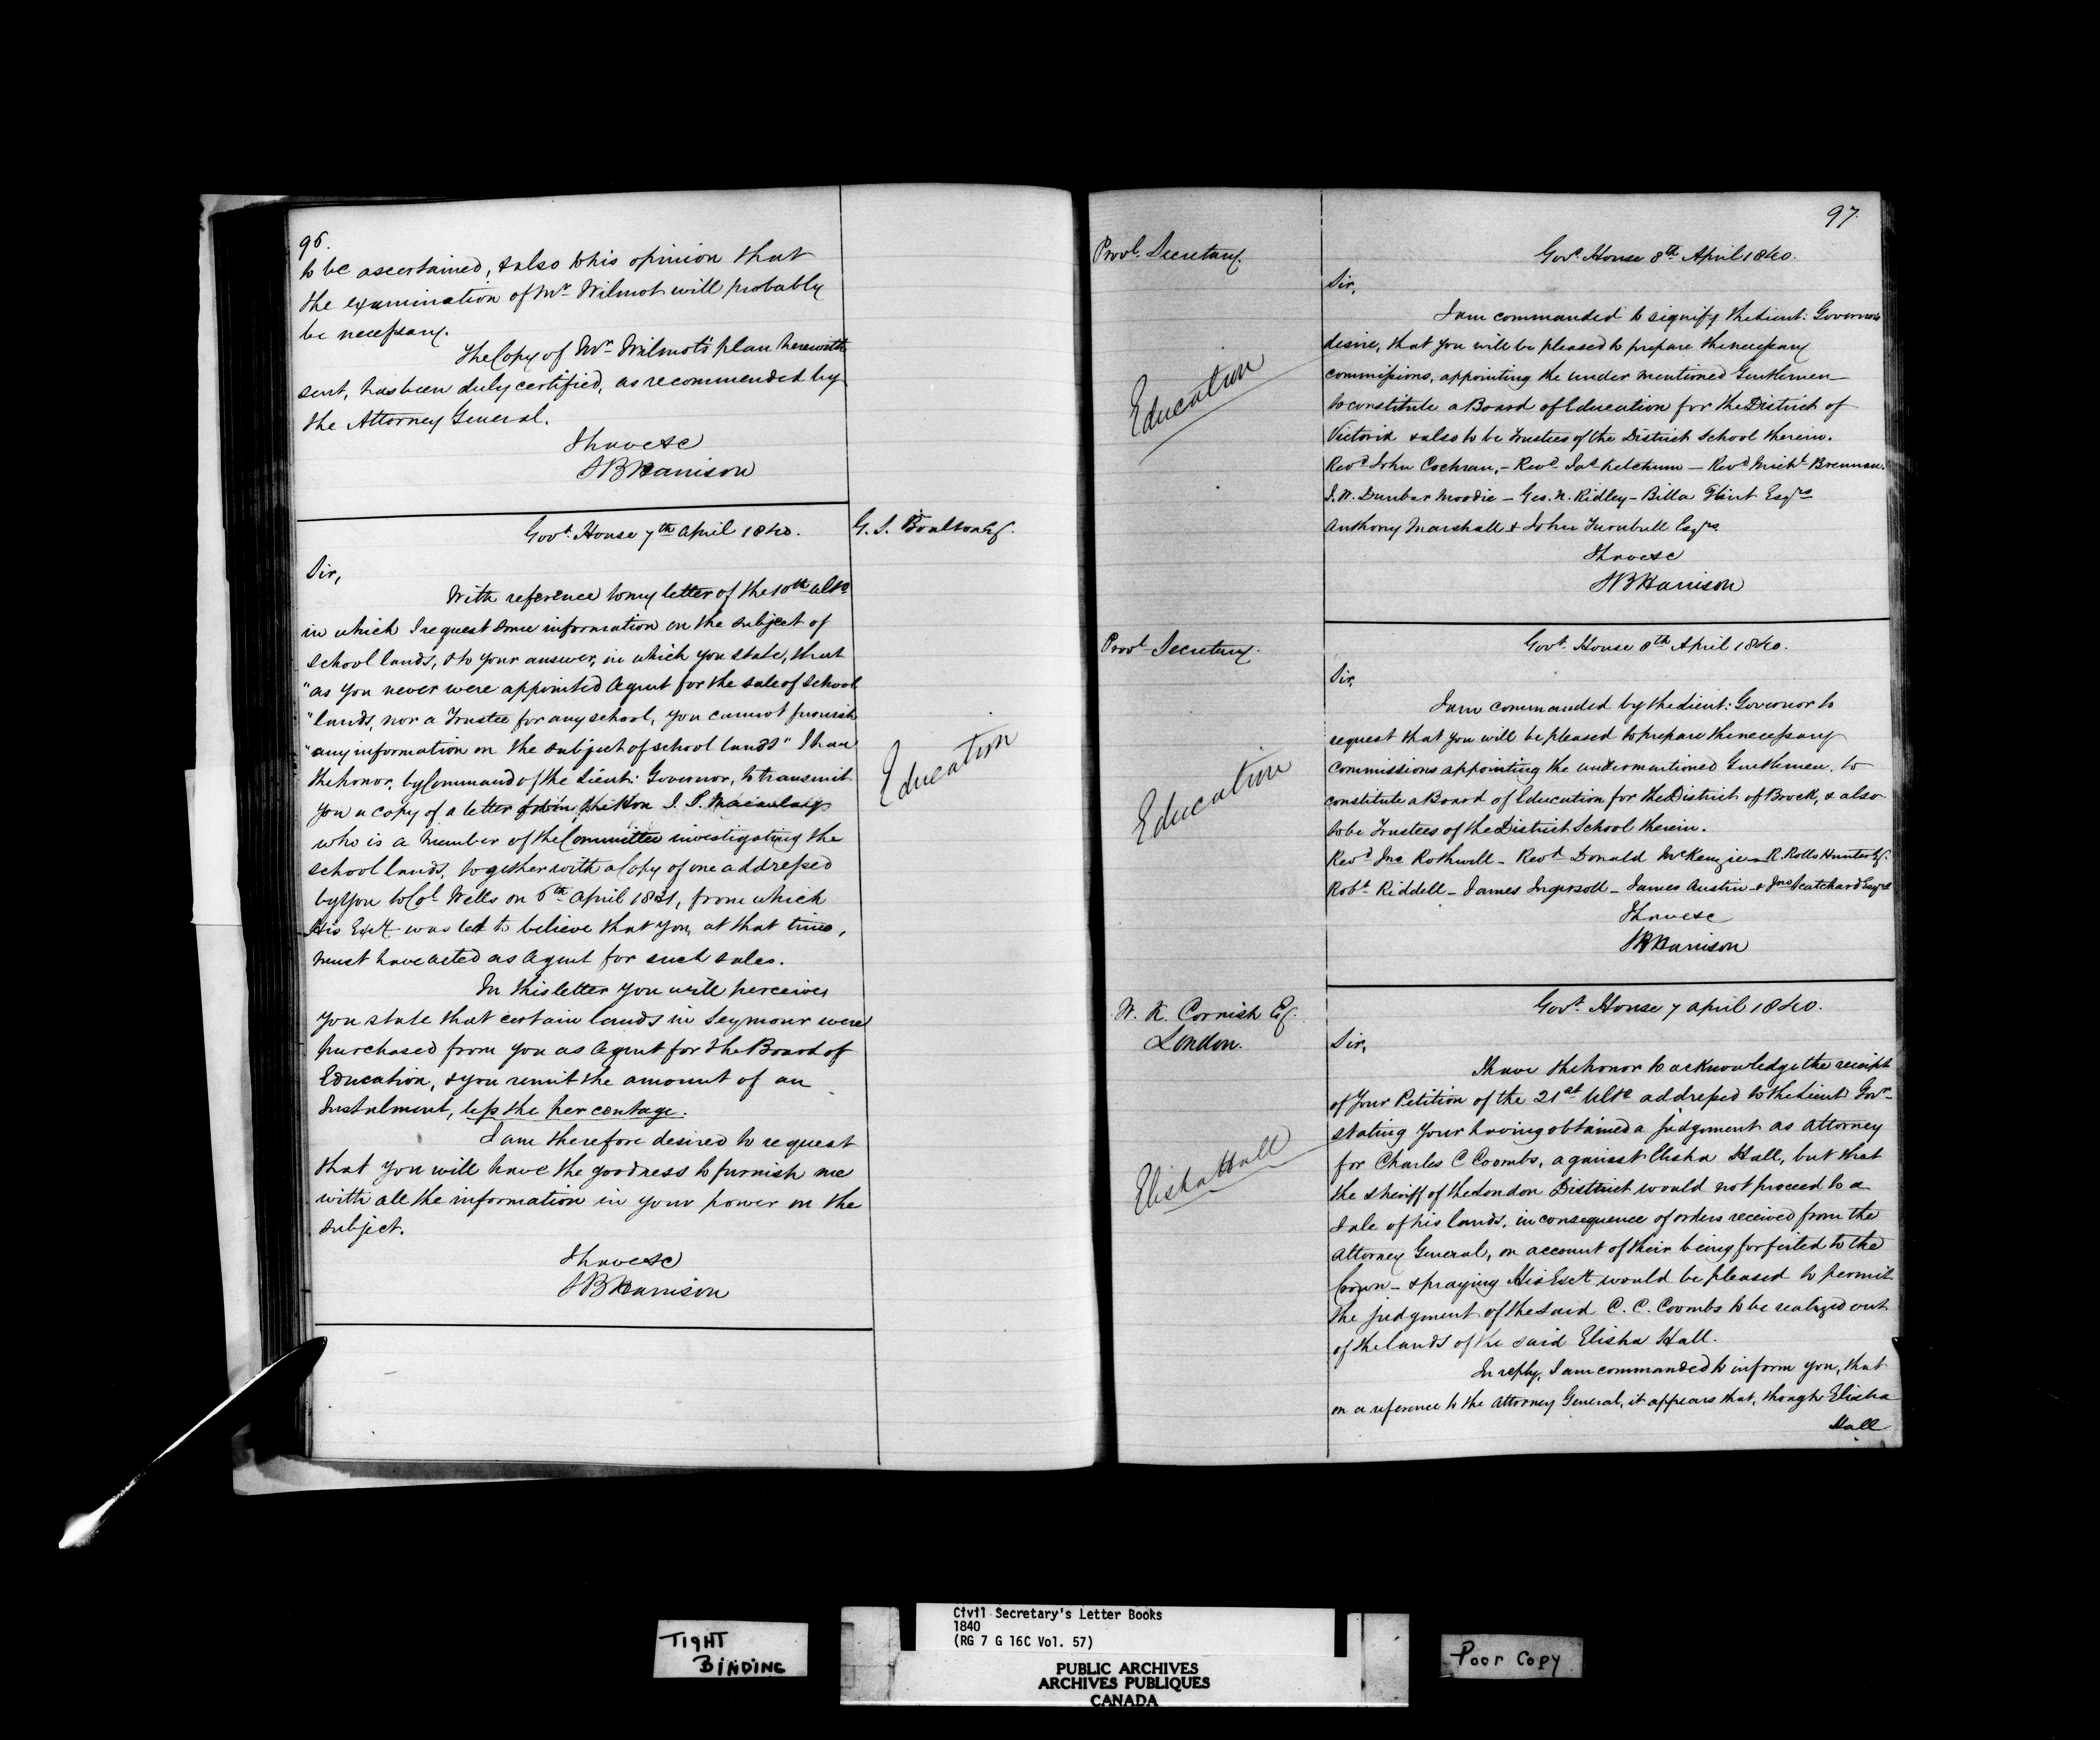 96.
to be ascertained, & also to his opinion that
the examination of Mr Wilmot will probably
be necessary.
The Copy of Mr Wilmot's plan herewith
sent, has been duly certified, as recommended by
the Attorney General.
I have &c
SBHarrison
G. S. Boulton Esq.
Govt. House 7th April 1840.
Sir,
With reference to my letter of the 10th ulto
in which I request some information on the subject of
school lands, & to your answer, in which you state, that
"as you never were appointed Agent for the sale of School
"lands, nor a Trustee for any school, you cannot furnish
"any information on the subject of school lands" I have
the honor, by Command of the Lieut: Governor, to transmit
you a copy of a letter from the Hon J. S. Macaulay
who is a member of the Committee investigating the
school lands, together with a Copy of one addressed
by you to Col Wells on 6th April 1831, from which
His Excy was led to believe that you, at that time,
must have acted as Agent for such sales.
In this letter you will perceive
you state that certain lands in Seymour were
purchased from you as Agent for the Board of
Education, & you remit the amount of an
Instalment, less the per centage.
I am therefore desired to request
that you will have the goodness to furnish me
with all the information in your power on the
subject.
I have &c
SBHarrison
Education
97.
Provl. Secretary.
Govt. House 8th April 1840.
Sir,
I am commanded to signify the Lieut: Governors
desire, that you will be pleased to prepare the necessary
commissions, appointing the under mentioned Gentlemen
to constitute a Board of Education for the District of
Victoria & also to be Trustees of the District School therein.
Revd John Cochran, - Revd Jas Ketchum - Revd Michl Brennan.
J. W. Dunbar Moodie - Geo. N. Ridley - Billa Flint Esqrs
Anthony Marshall & John Turnbull Esqrs
I have &c
SBHarrison
Education
Provl Secretary.
Govt. House 8th April 1840.
Sir,
I am commanded by the Lieut: Governor to
request that you will be pleased to prepare the necessary
commissions appointing the undermentioned Gentlemen, to
constitute a Board of Education for the District of Brock, & also
to be Trustees of the District School therein.
Revd Jno Rothwell - Revd Donald McKenzie - R Rollo Hunter Esq.
Robt Riddell - James Ingersoll - James Austin - & Jno Scatchard Esqrs
I have &c
SBHarrison
Education
W. K. Cornish Esq.
London.
Govt. House 7 April 1840.
Sir,
I have the honor to acknowledge the receipt
of your Petition of the 21st Ulto addressed to the Lieut Govr
stating your having obtained a judgment as Attorney
for Charles C Coombs, against Elisha Hall, but that
the Sheriff of the London District would not proceed to a
sale of his lands, in consequence of orders received from the
Attorney General, on account of their being forfeited to the
Crown - & praying His Excy would be pleased to permit
the judgment of the said C. C. Coombs to be realized out
of the lands of the said Elisha Hall.
In reply, I am commanded to inform you, that
on a reference to the Attorney General, it appears that, though Elisha
Hall
Elisha Hall
TIGHT
BINDING
Civil Secretary's Letter Books
1840
(RG 7 G 16C Vol. 57)
PUBLIC ARCHIVES
ARCHIVES PUBLIQUES
CANADA
Poor Copy